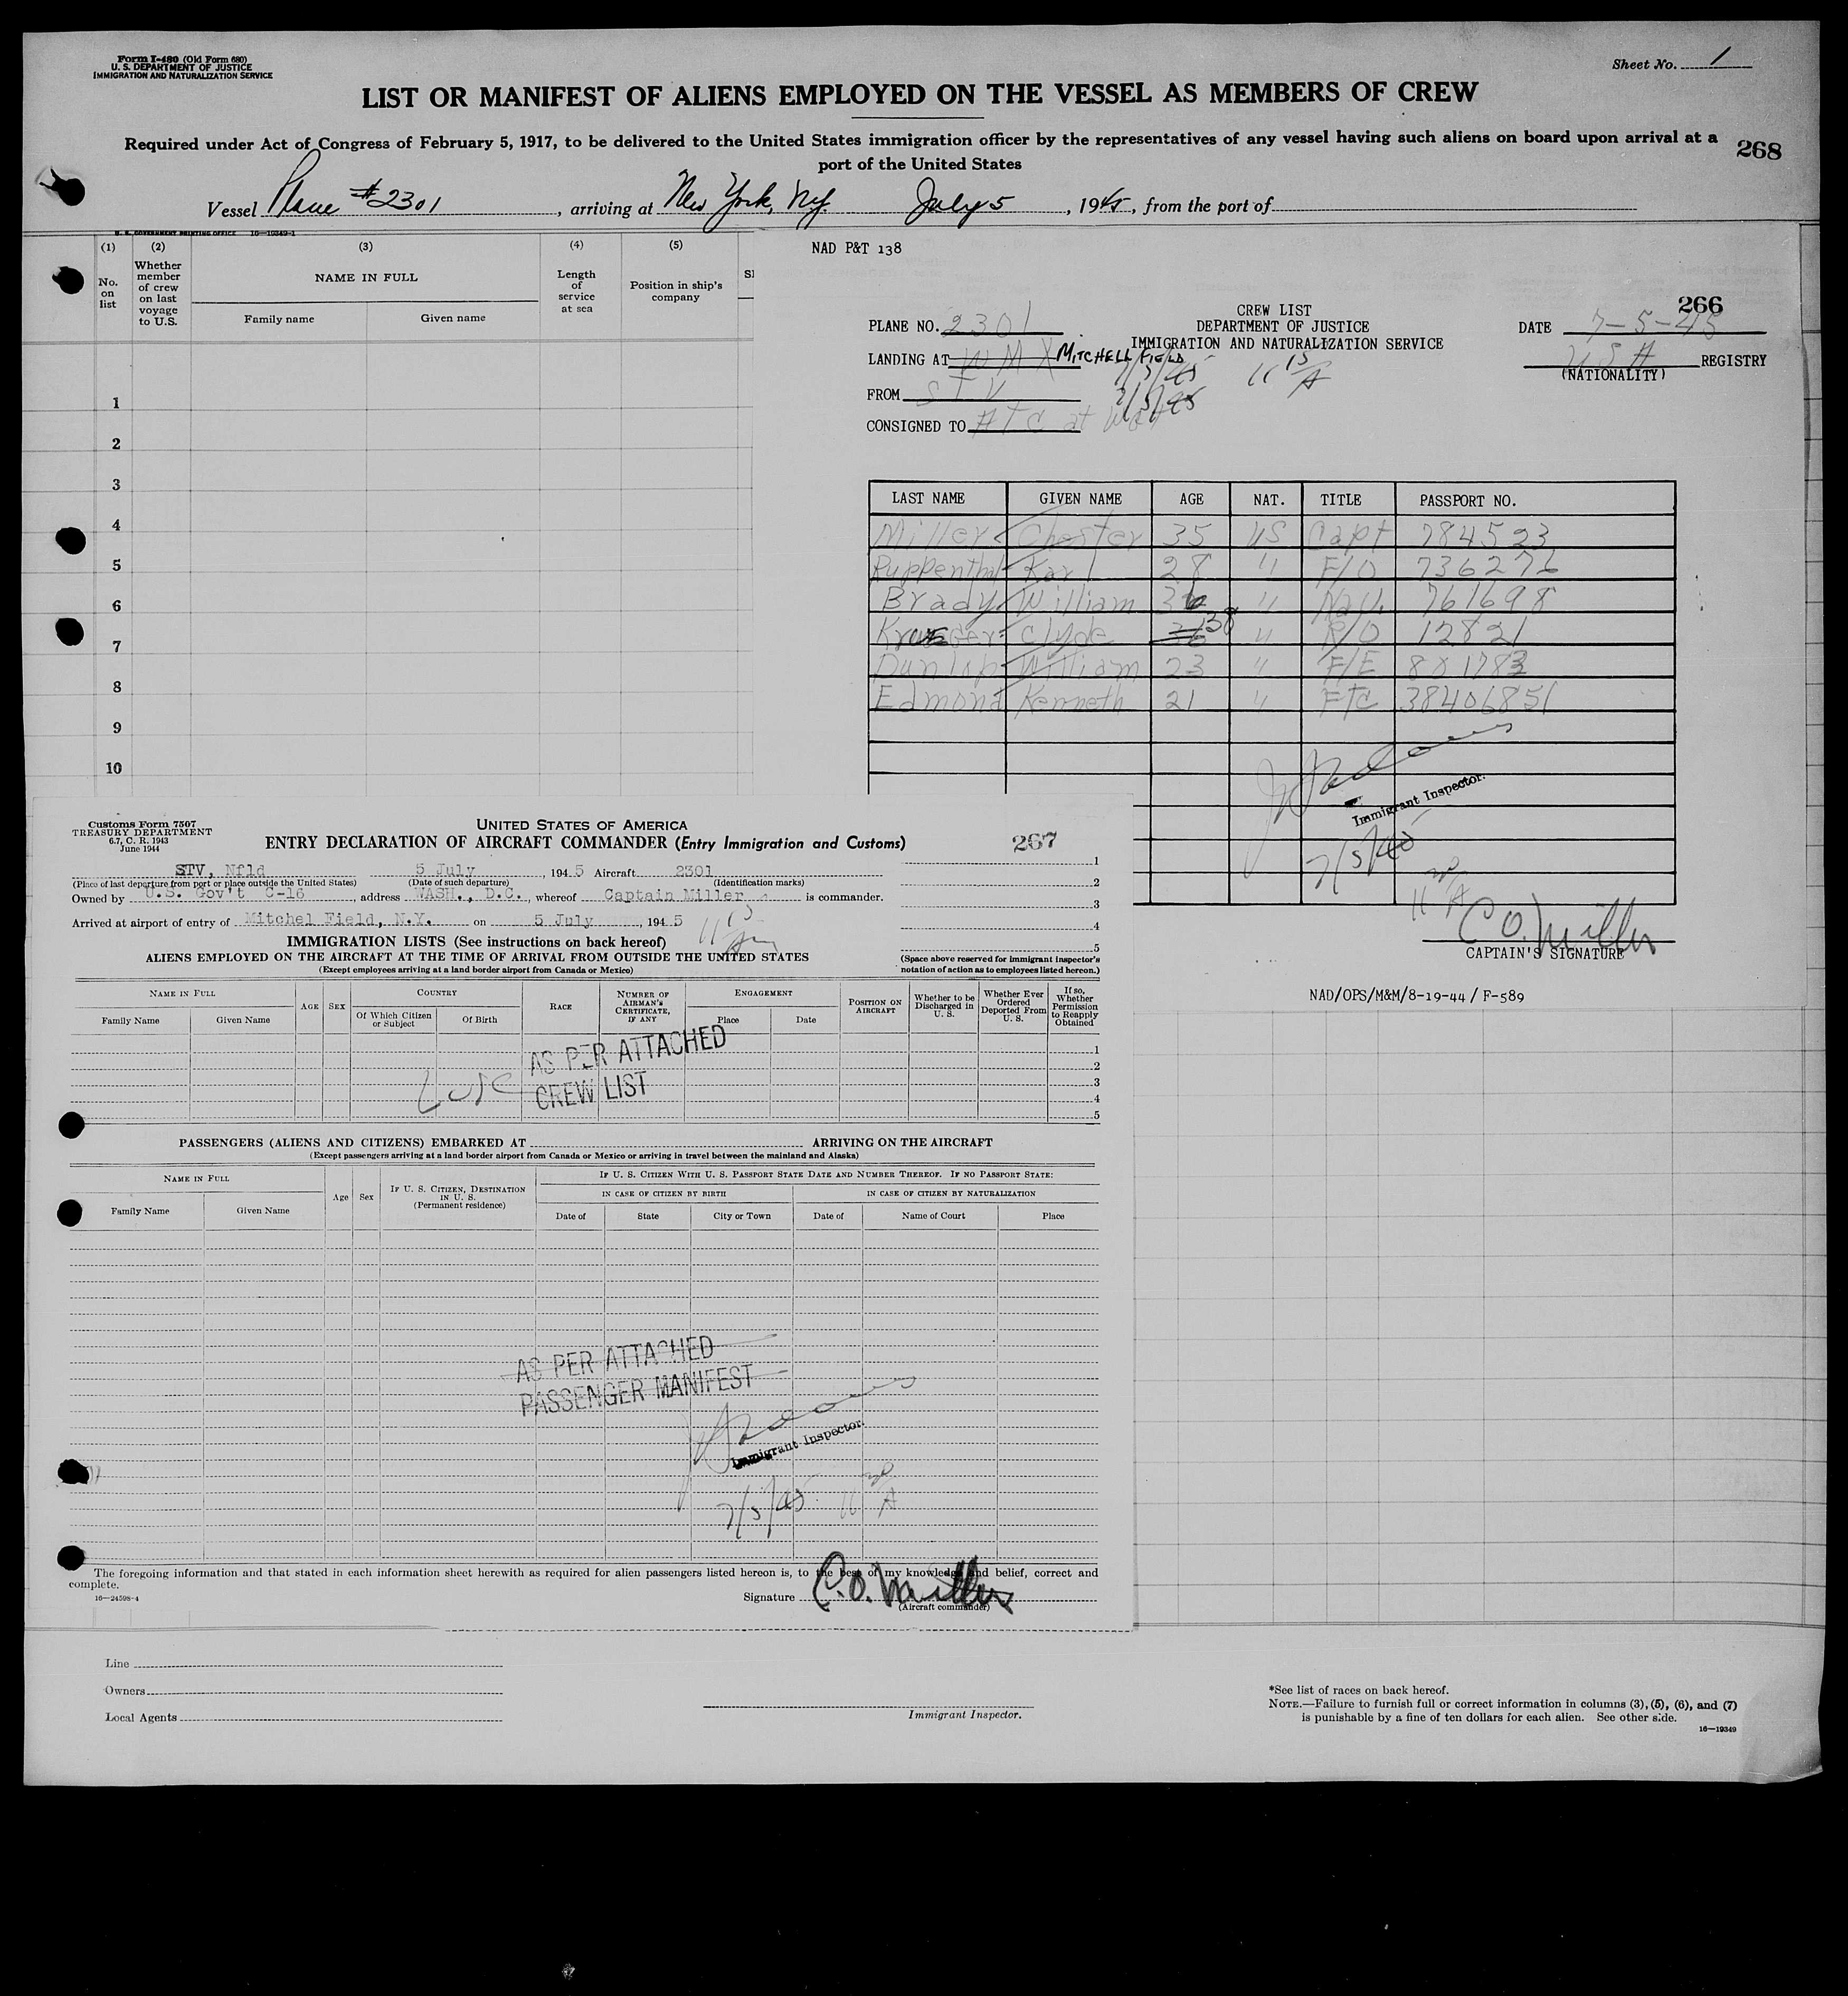 Form I-480 (Old Form 680)
U. S. DEPARTMENT OF JUSTICE
IMMIGRATION AND NATURALIZATION SERVICE
Sheet No. 1
LIST OR MANIFEST OF ALIENS EMPLOYED ON THE VESSEL AS MEMBERS OF CREW
Required under Act of Congress of February 5, 1917, to be delivered to the United States immigration officer by the representatives of any vessel having such aliens on board upon arrival at a
port of the United States
268
Vessel Plane #2301, arriving at New York, NY. July 5, 1945, from the port of
U. S. GOVERNMENT PRINTING OFFICE 16—19349-1
(1) (2) (3) (4) (5)
No. on list
Whether member of crew on last voyage to U.S.
NAME IN FULL
Family name Given name
Length of service at sea
Position in ship's company
1
2
3
4
5
6
7
8
9
10
NAD P&T 138
266
CREW LIST
DEPARTMENT OF JUSTICE
IMMIGRATION AND NATURALIZATION SERVICE
PLANE NO. 2301
DATE 7-5-45
LANDING AT WMX MITCHELL FIELD
7/5/45 11 15 A
USA REGISTRY
(NATIONALITY)
FROM STV 7/5/45
CONSIGNED TO ATC at
LAST NAME GIVEN NAME AGE NAT. TITLE PASSPORT NO.
Miller Chester 35 US Capt 784523
Ruppenthal Karl 28 " F/O 736276
Brady William " Nav. 761698
Krueger Clyde 38 " R/O 12821
Dunlap William 23 " F/E
Edmond Kenneth 21 " FTC 38406851
Immigrant Inspector.
7/5/45
C O. Miller
CAPTAIN'S SIGNATURE
NAD/OPS/M&M/8-19-44 / F-589
Customs Form 7507
TREASURY DEPARTMENT
6.7, C. R. 1943
June 1944
UNITED STATES OF AMERICA
ENTRY DECLARATION OF AIRCRAFT COMMANDER (Entry Immigration and Customs)
267
STV, Nfld 5 July, 1945 Aircraft 2301
(Place of last departure from port or place outside the United States) (Date of such departure) (Identification marks)
Owned by U.S. Gov't C-16, address WASH., D.C., whereof Captain Miller is commander.
Arrived at airport of entry of Mitchel Field, N.Y. on 5 July, 1945
11 15 Am
1
2
3
4
5
IMMIGRATION LISTS (See instructions on back hereof)
ALIENS EMPLOYED ON THE AIRCRAFT AT THE TIME OF ARRIVAL FROM OUTSIDE THE UNITED STATES
(Except employees arriving at a land border airport from Canada or Mexico)
(Space above reserved for immigrant inspector's
notation of action as to employees listed hereon.)
NAME IN FULL
Family Name Given Name
AGE SEX
COUNTRY
Of Which Citizen or Subject Of Birth
RACE
NUMBER OF AIRMAN'S CERTIFICATE, IF ANY
ENGAGEMENT
Place Date
POSITION ON AIRCRAFT
Whether to be Discharged in U. S.
Whether Ever Ordered Deported From U. S.
If so, Whether Permission to Reapply Obtained
1
2
3
4
5
AS PER ATTACHED
CREW LIST
PASSENGERS (ALIENS AND CITIZENS) EMBARKED AT ARRIVING ON THE AIRCRAFT
(Except passengers arriving at a land border airport from Canada or Mexico or arriving in travel between the mainland and Alaska)
NAME IN FULL
Family Name Given Name
Age Sex
IF U. S. CITIZEN, DESTINATION IN U. S. (Permanent residence)
IF U. S. CITIZEN WITH U. S. PASSPORT STATE DATE AND NUMBER THEREOF. IF NO PASSPORT STATE:
IN CASE OF CITIZEN BY BIRTH IN CASE OF CITIZEN BY NATURALIZATION
Date of State City or Town Date of Name of Court Place
AS PER ATTACHED
PASSENGER MANIFEST
Immigrant Inspector.
7/5/45
The foregoing information and that stated in each information sheet herewith as required for alien passengers listed hereon is, to the best of my knowledge and belief, correct and
complete.
16—24598-4
Signature C.O. Miller
(Aircraft commander)
Line
Owners
Local Agents
Immigrant Inspector.
*See list of races on back hereof.
NOTE.—Failure to furnish full or correct information in columns (3), (5), (6), and (7)
is punishable by a fine of ten dollars for each alien. See other side.
16—19349